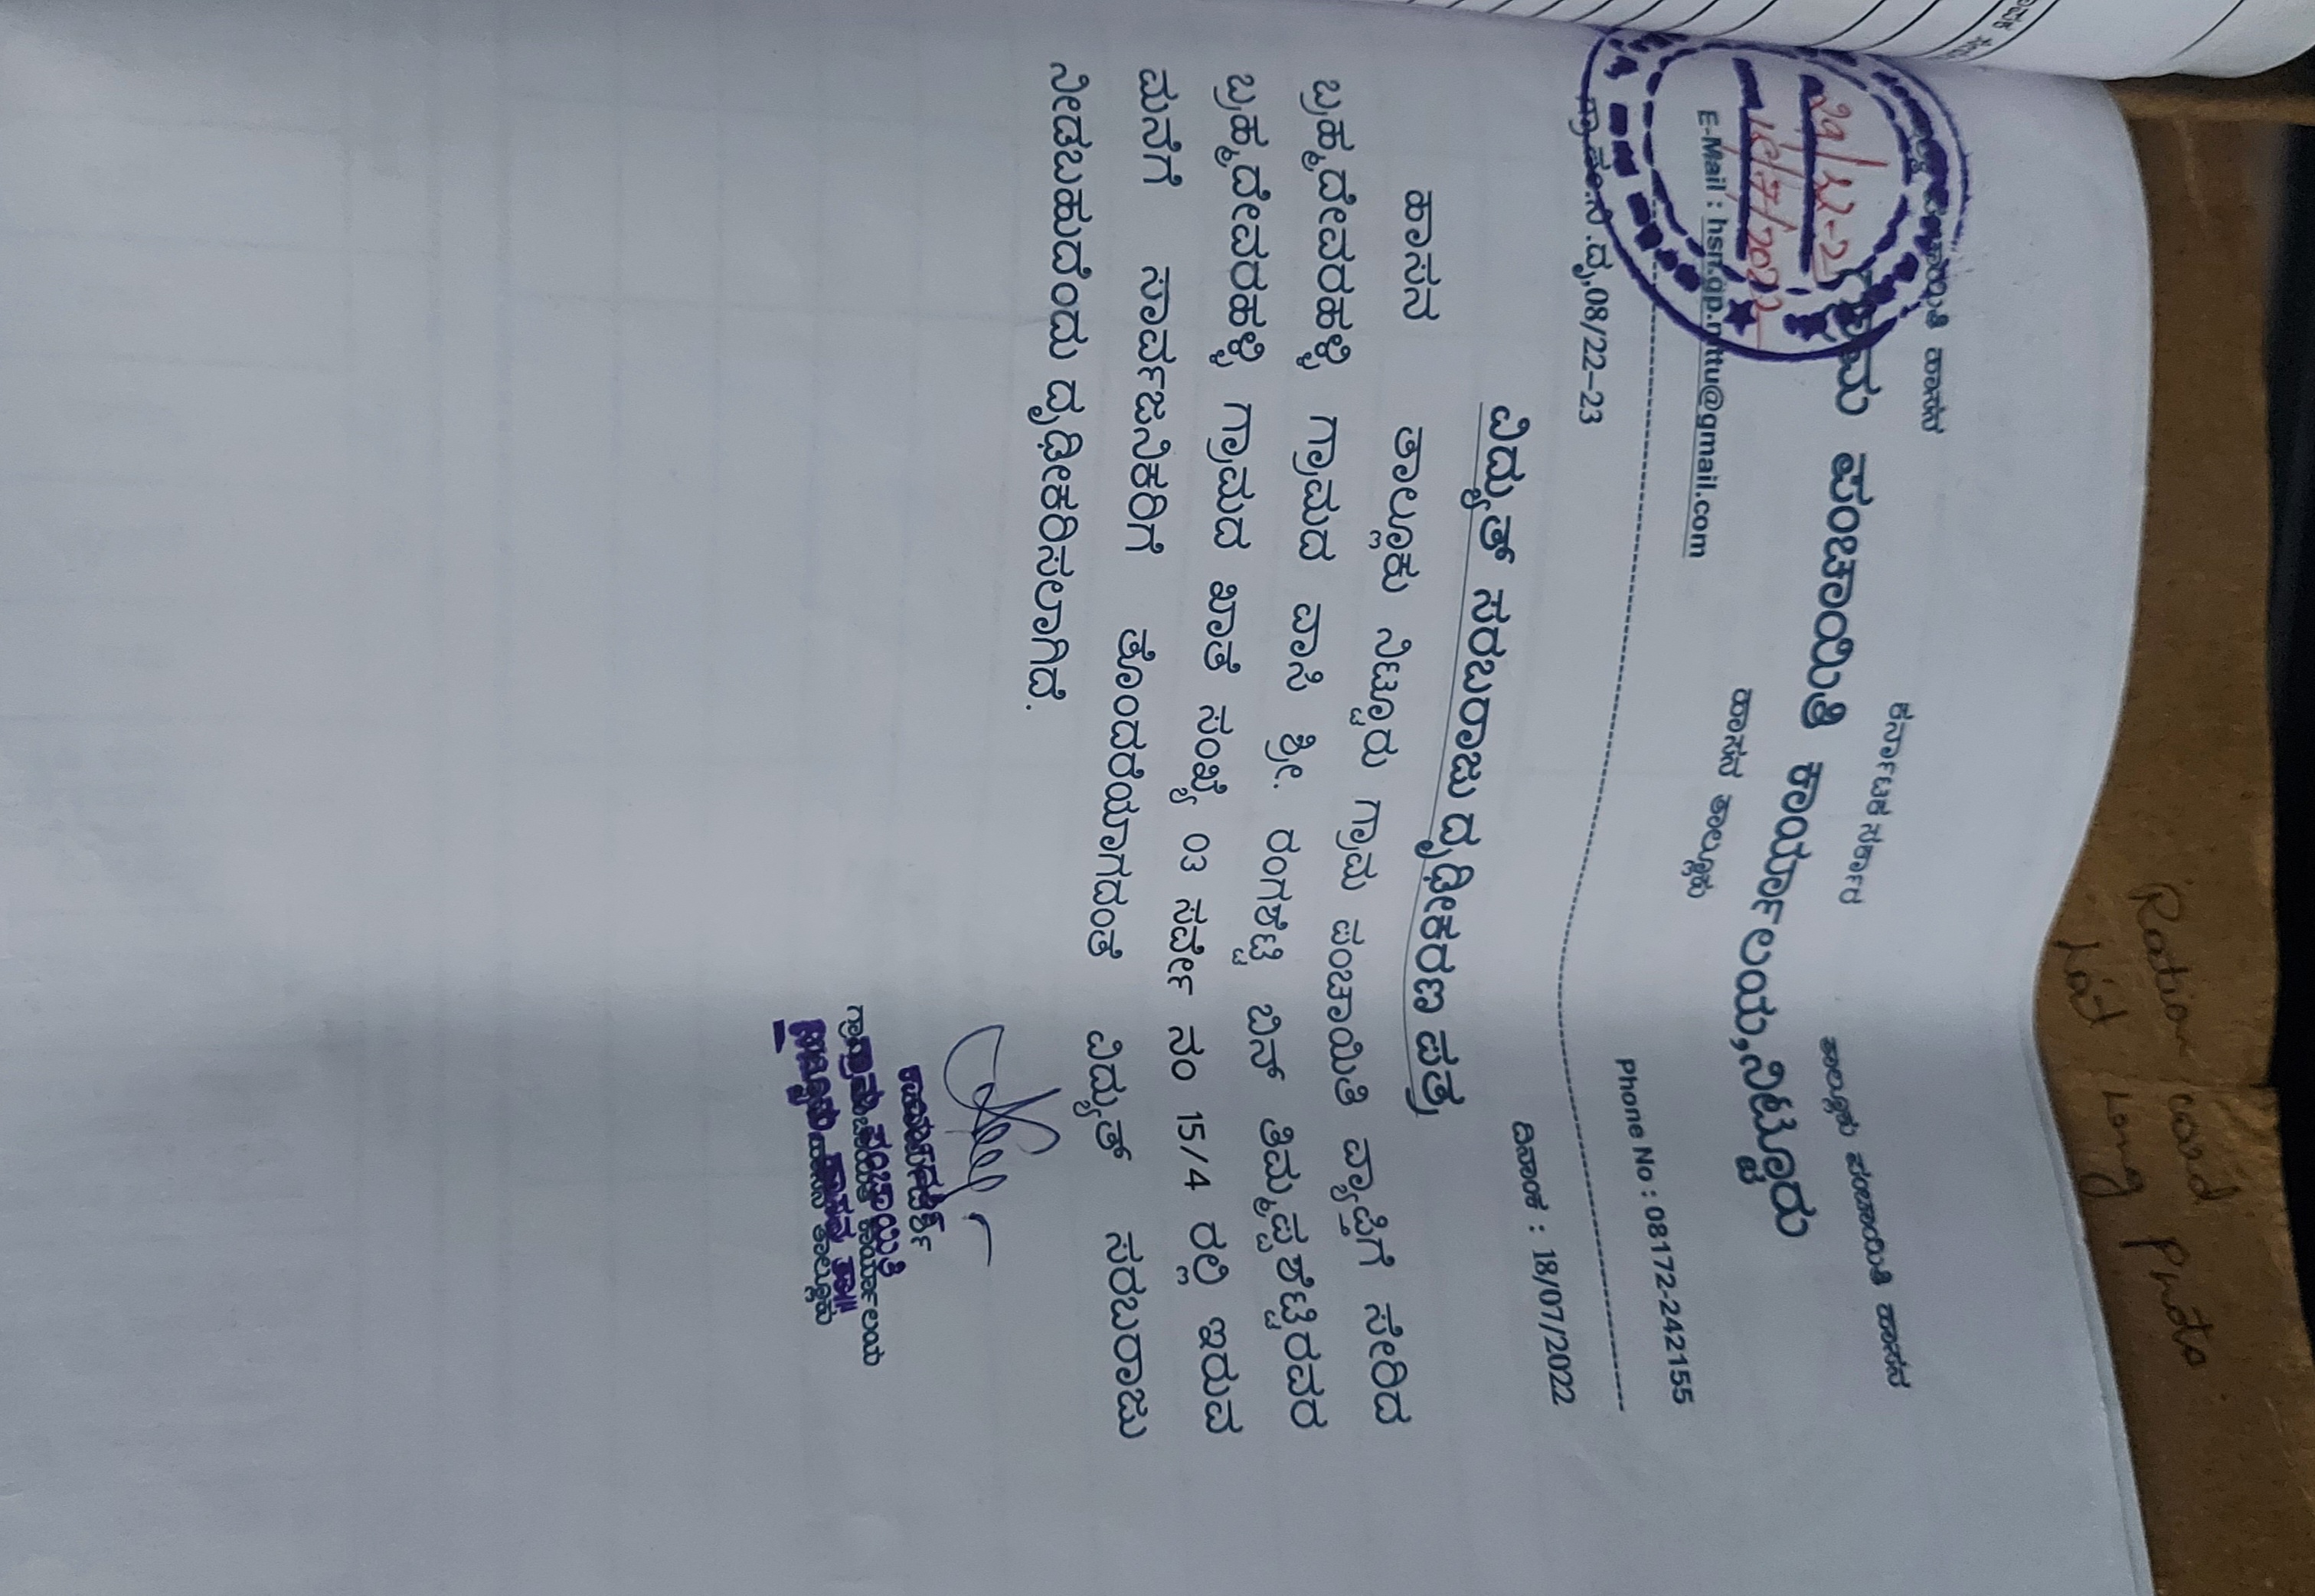 ಕರ್ನಾಟಕ ಸರ್ಕಾರ
ಪಂಚಾಯಿತಿ ಹಾಸನ ತಾಲ್ಲೂಕು ಪಂಚಾಯಿತಿ ಹಾಸನ
ಗ್ರಾಮ ಪಂಚಾಯಿತಿ ಕಾರ್ಯಾಲಯ,ನಿಟ್ಟೂರು
ಹಾಸನ ತಾಲ್ಲೂಕು
E-Mail : hsn.gp.nittu@gmail.com Phone No : 08172-242155
29/22-23
18/7/2022
ಗ್ರಾ.ಪಂ.ನಿ.ವ್ಯ,08/22-23 ದಿನಾಂಕ : 18/07/2022
ವಿದ್ಯುತ್ ಸರಬರಾಜು ದೃಢೀಕರಣ ಪತ್ರ
ಹಾಸನ ತಾಲ್ಲೂಕು ನಿಟ್ಟೂರು ಗ್ರಾಮ ಪಂಚಾಯಿತಿ ವ್ಯಾಪ್ತಿಗೆ ಸೇರಿದ
ಬ್ರಹ್ಮದೇವರಹಳ್ಳಿ ಗ್ರಾಮದ ವಾಸಿ ಶ್ರೀ. ರಂಗಶೆಟ್ಟಿ ಬಿನ್ ತಿಮ್ಮಪ್ಪಶೆಟ್ಟಿರವರ
ಬ್ರಹ್ಮದೇವರಹಳ್ಳಿ ಗ್ರಾಮದ ಖಾತೆ ಸಂಖ್ಯೆ 03 ಸರ್ವೇ ನಂ 15/4 ರಲ್ಲಿ ಇರುವ
ಮನೆಗೆ ಸಾರ್ವಜನಿಕರಿಗೆ ತೊಂದರೆಯಾಗದಂತೆ ವಿದ್ಯುತ್ ಸರಬರಾಜು
ನೀಡಬಹುದೆಂದು ದೃಢೀಕರಿಸಲಾಗಿದೆ.
ಗ್ರಾಮ ಪಂಚಾಯಿತಿ ಕಾರ್ಯಾಲಯ
ನಿಟ್ಟೂರು ಹಾಸನ ತಾಲ್ಲೂಕು
Ration card
Long Photo